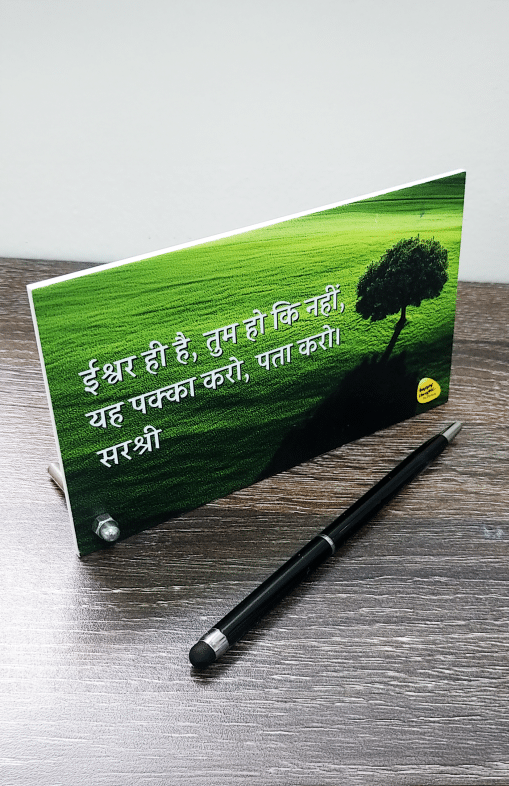 ईश्वर ही है, तुम हो कि नहीं,
यह पक्का करो, पता करो।
सरश्री